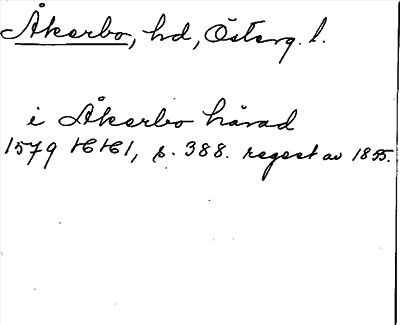 Åkerbo, hd, Österg. l.
i Åkerbo härad
1579 HH1, s. 388. regest av 1855.